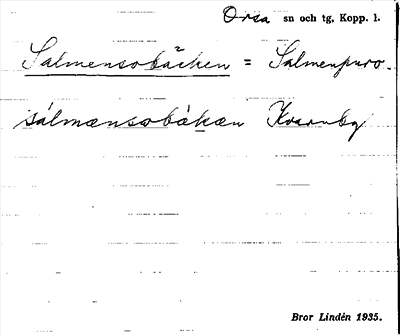 Orsa sn och tg, Kopp. l.
Salmensobäcken = Salmenpuro.
sálmænsobäkæn Kvarnby
Bror Lindén 1935.